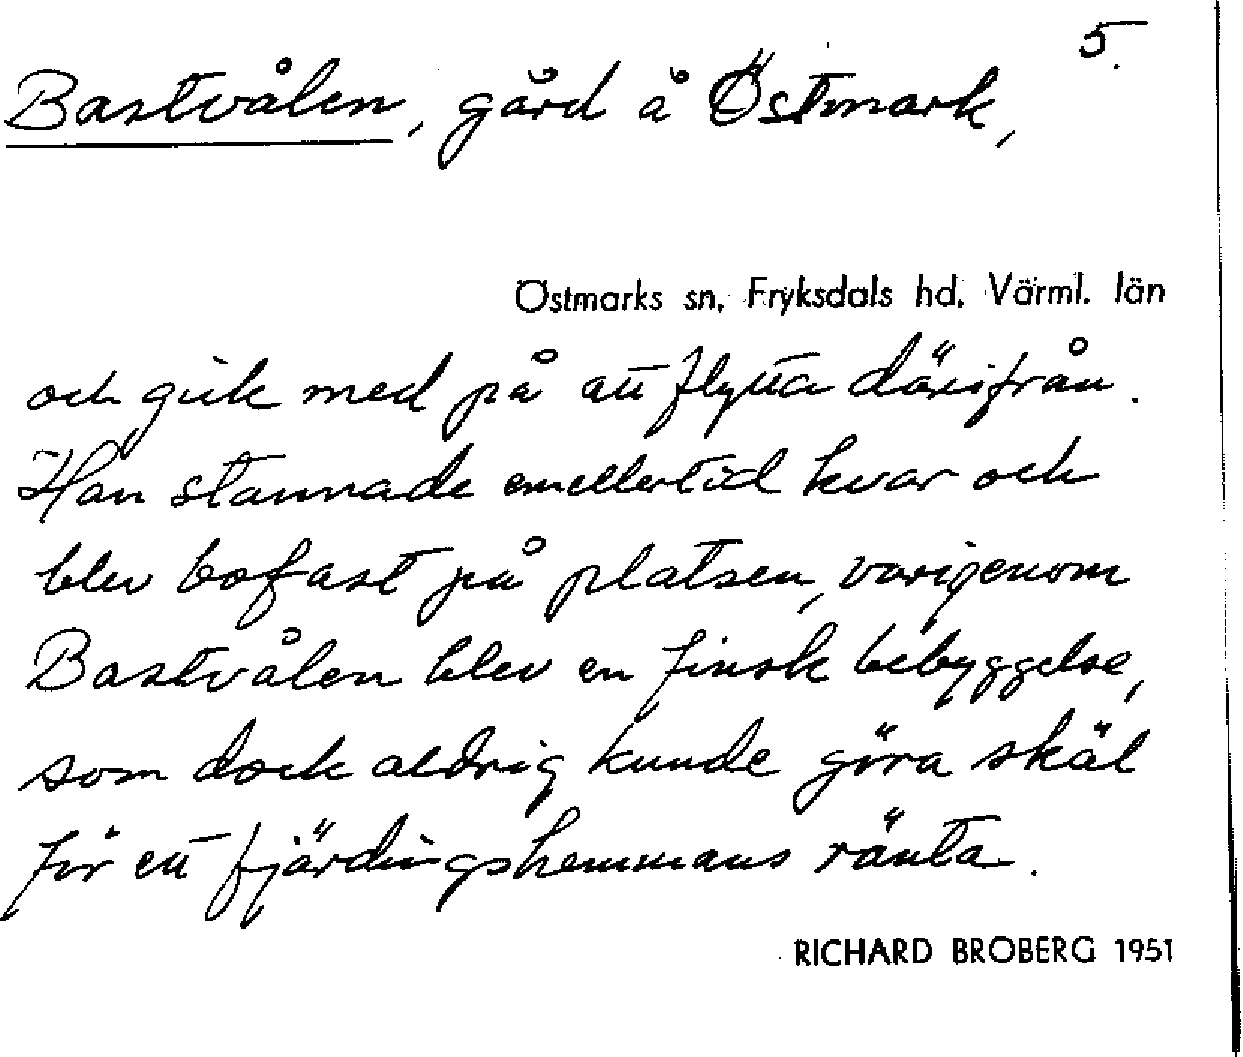 5.
Bastvålen, gård å Östmark,
Östmarks sn, Fryksdals hd. Värml. län
och gick med på att flytta därifrån.
Han stannade emellertid kvar och
blev bofast på platsen, varigenom
Bastvålen blev en finsk bebyggelse,
som dock aldrig kunde göra skäl
för ett fjärdingshemmans ränta.
RICHARD BROBERG 1951